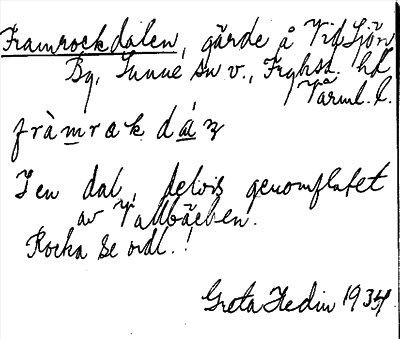 Framrockdalen, gärde å Vid Sjön
By, Sunne sn v., Fryksd. hd
Värml. l.
fràmrαkdáɳ
I en dal, delvis genomflutet
av Vallbäcken.
Rocka se ordl.!
Greta Hedin 1934